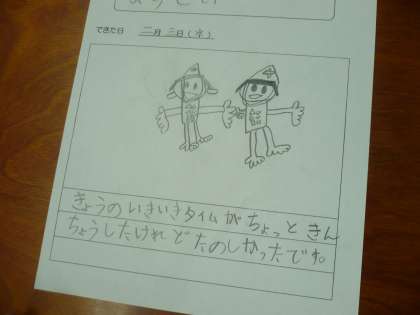 できた日 三月三日(水)
きょうのいきいきタイムがちょっときん
ちょうしたけれどたのしかったです。